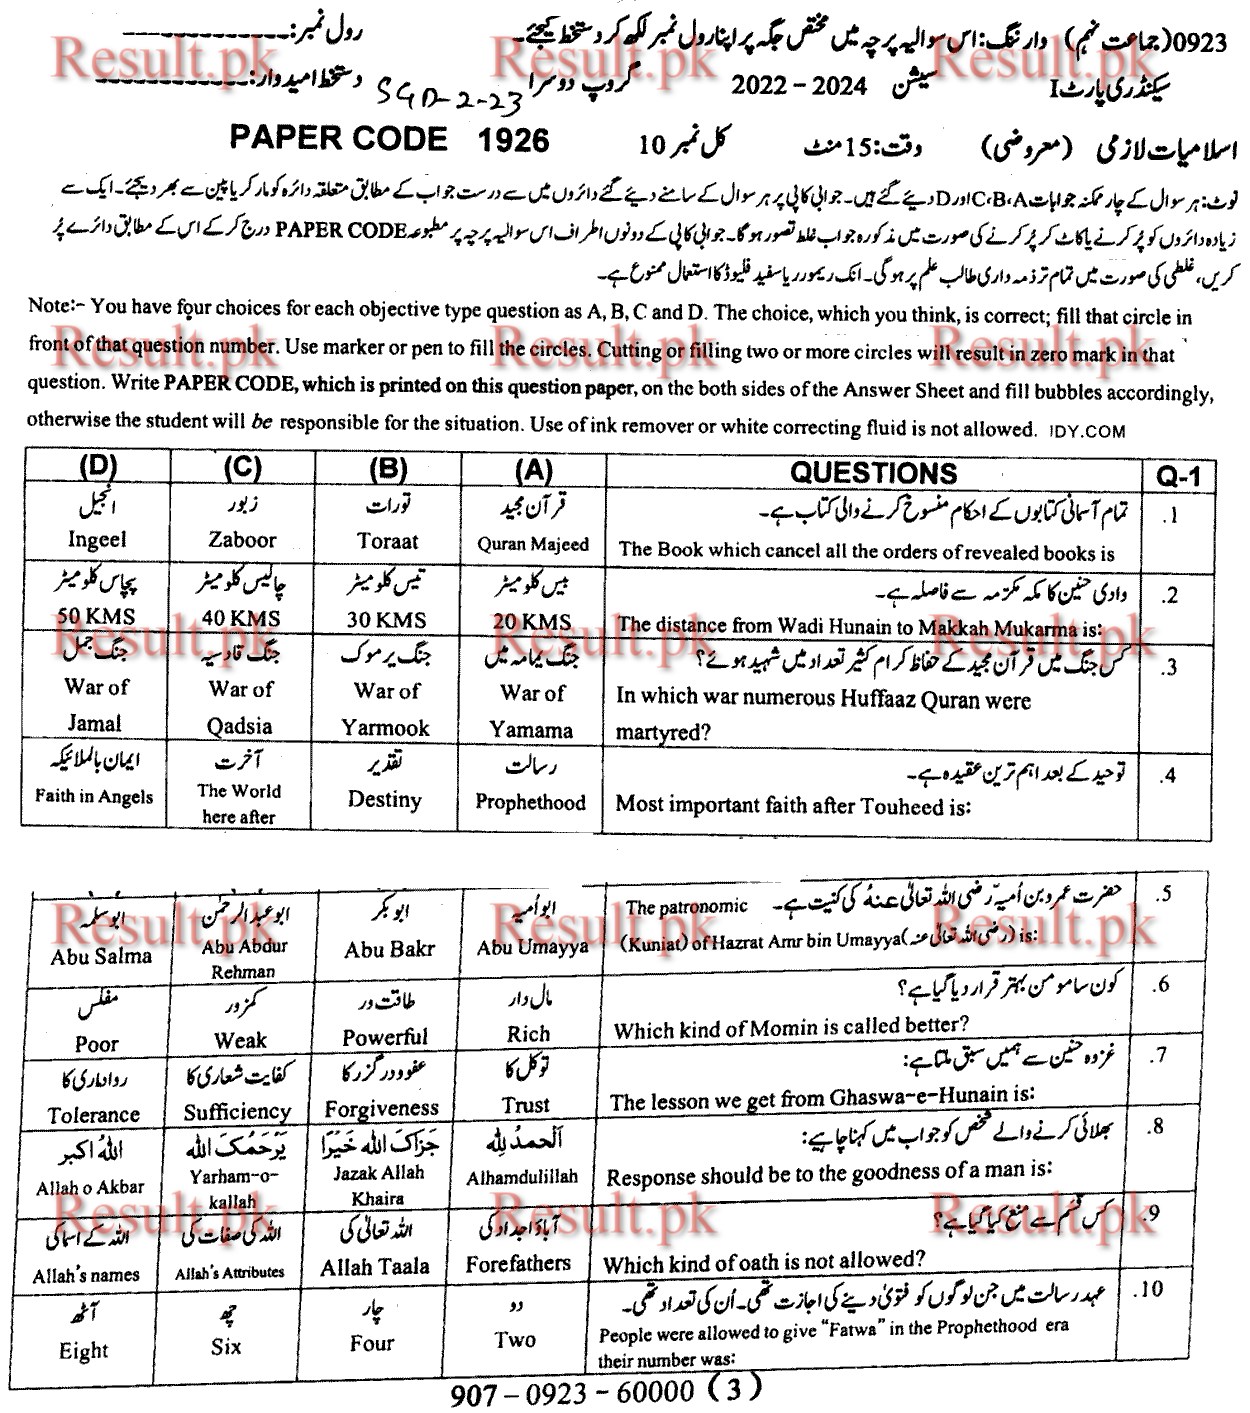 0923(جماعت نہم) وارننگ: اس سوالیہ پرچہ میں مختص جگہ پر اپنا رول نمبر لکھ کر دستخط کیجئے۔ رول نمبر:
سیکنڈری پارٹ I سیشن 2022 – 2024 گروپ دوسرا SGD-2-23 دستخط امیدوار:
اسلامیات لازمی (معروضی) وقت: 15 منٹ کل نمبر 10 PAPER CODE 1926
نوٹ: ہر سوال کے چار ممکنہ جوابات C،B،A اور D دیئے گئے ہیں۔ جوابی کاپی پر ہر سوال کے سامنے دیئے گئے دائروں میں سے درست جواب کے مطابق متعلقہ دائرہ کو مارکر یا پین سے بھر دیجئے۔ ایک سے
زیادہ دائروں کو پُر کرنے یا کاٹ کر پُر کرنے کی صورت میں مذکورہ جواب غلط تصور ہوگا۔ جوابی کاپی کے دونوں اطراف اس سوالیہ پرچہ پر مطبوعہ PAPER CODE درج کر کے اس کے مطابق دائرے پُر
کریں، غلطی کی صورت میں تمام تر ذمہ داری طالب علم پر ہوگی۔ انک ریمور ریا سفید فلیوڈ کا استعمال ممنوع ہے۔
Note:- You have four choices for each objective type question as A, B, C and D. The choice, which you think, is correct; fill that circle in
front of that question number. Use marker or pen to fill the circles. Cutting or filling two or more circles will result in zero mark in that
question. Write PAPER CODE, which is printed on this question paper, on the both sides of the Answer Sheet and fill bubbles accordingly,
otherwise the student will be responsible for the situation. Use of ink remover or white correcting fluid is not allowed. IDY.COM
(D) (C) (B) (A) QUESTIONS Q-1
انجیل زبور تورات قرآن مجید تمام آسمانی کتابوں کے احکام منسوخ کرنے والی کتاب ہے۔ .1
Ingeel Zaboor Toraat Quran Majeed The Book which cancel all the orders of revealed books is
پچاس کلومیٹر چالیس کلومیٹر تیس کلومیٹر بیس کلومیٹر وادی حنین کا مکہ مکرمہ سے فاصلہ ہے۔ .2
50 KMS 40 KMS 30 KMS 20 KMS The distance from Wadi Hunain to Makkah Mukarma is:
جنگ جمل جنگ قادسیہ جنگ یرموک جنگ یمامہ میں کس جنگ میں قرآن مجید کے حفاظ کرام کثیر تعداد میں شہید ہوئے؟ .3
War of War of War of War of In which war numerous Huffaaz Quran were
Jamal Qadsia Yarmook Yamama martyred?
ایمان بالملائیکہ آخرت تقدیر رسالت توحید کے بعد اہم ترین عقیدہ ہے۔ .4
Faith in Angels The World here after Destiny Prophethood Most important faith after Touheed is:
ابو سلمہ ابو عبدالرحمٰن ابو بکر ابو امیہ حضرت عمرو بن اُمیہ رضی اللہ تعالیٰ عنہُ کی کنیت ہے۔ The patronomic .5
Abu Salma Abu Abdur Rehman Abu Bakr Abu Umayya (Kuniat) of Hazrat Amr bin Umayya(رضی اللہ تعالیٰ عنہ) is:
مفلس کمزور طاقت ور مال دار کون سا مومن بہتر قرار دیا گیا ہے؟ .6
Poor Weak Powerful Rich Which kind of Momin is called better?
رواداری کا کفایت شعاری کا عفو و درگزر کا توکل کا غزوہ حنین سے ہمیں سبق ملتا ہے: .7
Tolerance Sufficiency Forgiveness Trust The lesson we get from Ghaswa-e-Hunain is:
اللہُ اکبر یَرْحَمُکَ اللہ جَزَاکَ اللہ خَیْرًا اَلْحمدُ لِلّٰہِ بھلائی کرنے والے شخص کو جواب میں کہنا چاہیے: .8
Allah o Akbar Yarham-o-kallah Jazak Allah Khaira Alhamdulillah Response should be to the goodness of a man is:
اللہ کے اسما کی اللہ کی صفات کی اللہ تعالیٰ کی آباؤ اجداد کی کس قسم سے منع کیا گیا ہے؟ .9
Allah's names Allah's Attributes Allah Taala Forefathers Which kind of oath is not allowed?
آٹھ چھ چار دو عہد رسالت میں جن لوگوں کو فتویٰ دینے کی اجازت تھی۔ اُن کی تعداد تھی۔ .10
Eight Six Four Two People were allowed to give "Fatwa" in the Prophethood era
their number was:
907 – 0923 – 60000 (3)
Result.pk